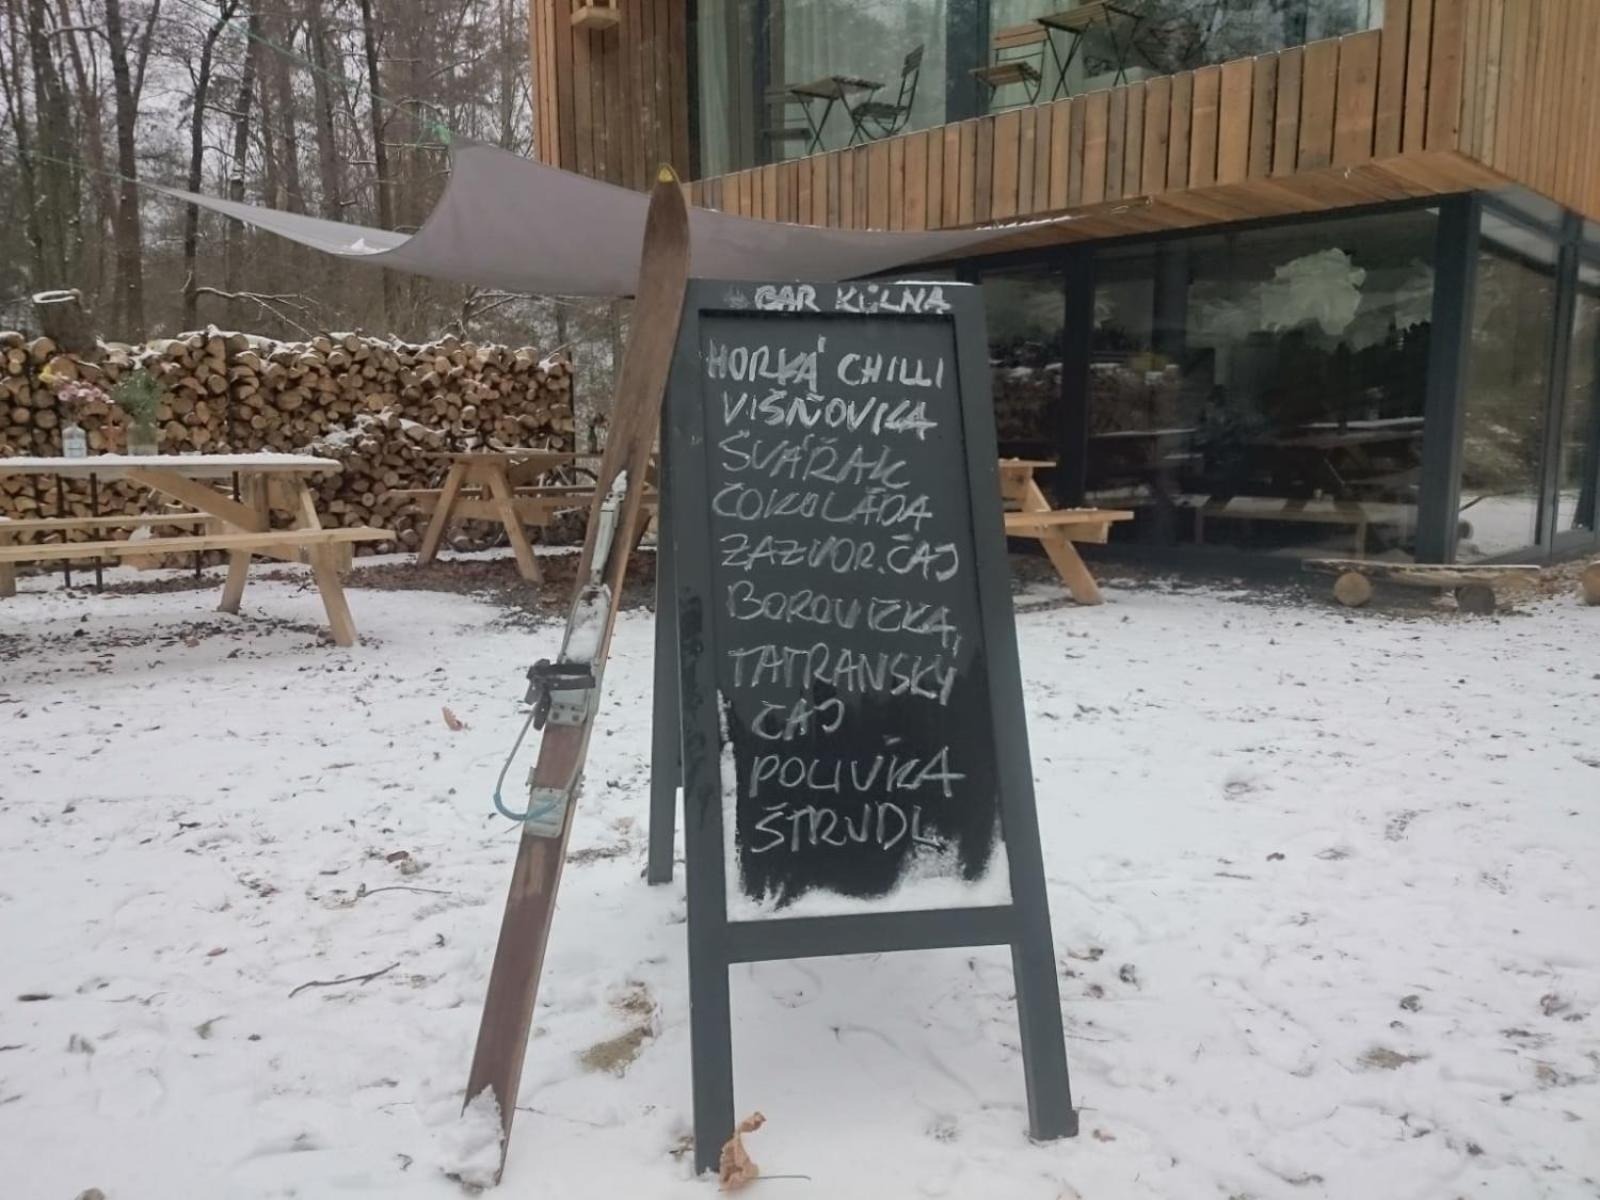 BAR KŮLNA
HORKÁ CHILLI
VIŠŇOVKA
SVAŘÁK
ČOKOLÁDA
ZÁZVOR. ČAJ
BOROVIČKA,
TATRANSKÝ
ČAJ
POLÍVKA
ŠTRUDL